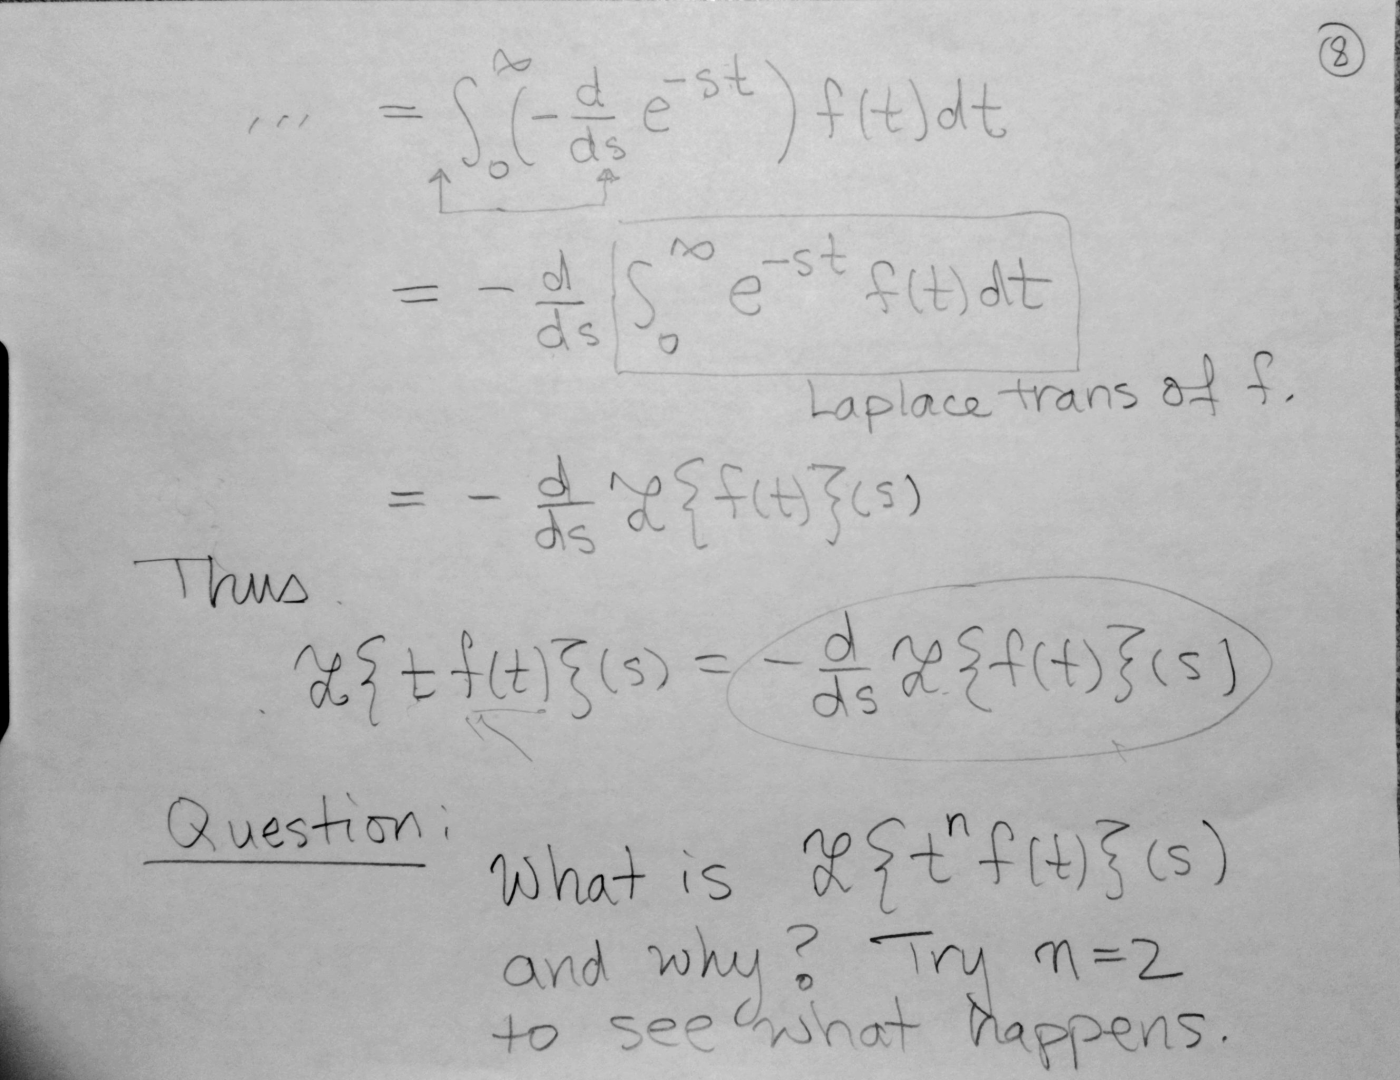 ⑧
... = ∫₀^∞ (-d/ds e^{-st}) f(t)dt
= - d/ds ∫₀^∞ e^{-st} f(t)dt
Laplace trans of f.
= - d/ds ℒ{f(t)}(s)
Thus
ℒ{t f(t)}(s) = - d/ds ℒ{f(t)}(s)
Question:
What is ℒ{tⁿ f(t)}(s)
and why? Try n=2
to see what happens.